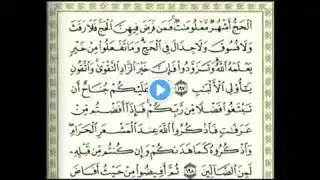 ٱلْحَجُّ أَشْهُرٌ مَّعْلُومَـٰتٌ فَمَن فَرَضَ فِيهِنَّ ٱلْحَجَّ فَلَا رَفَثَ
وَلَا فُسُوقَ وَلَا جِدَالَ فِى ٱلْحَجِّ وَمَا تَفْعَلُوا۟ مِنْ خَيْرٍ
يَعْلَمْهُ ٱللَّهُ وَتَزَوَّدُوا۟ فَإِنَّ خَيْرَ ٱلزَّادِ ٱلتَّقْوَىٰ وَٱتَّقُونِ
يَـٰٓأُو۟لِى ٱلْأَلْبَـٰبِ ١٩٧ عَلَيْكُمْ جُنَاحٌ أَن
تَبْتَغُوا۟ فَضْلًا مِّن رَّبِّكُمْ فَإِذَآ أَفَضْتُم مِّنْ
عَرَفَـٰتٍ فَٱذْكُرُوا۟ ٱللَّهَ عِندَ ٱلْمَشْعَرِ ٱلْحَرَامِ
وَٱذْكُرُوهُ كَمَا هَدَىٰكُمْ وَإِن كُنتُم مِّن قَبْلِهِۦ
لَمِنَ ٱلضَّآلِّينَ ١٩٨ ثُمَّ أَفِيضُوا۟ مِنْ حَيْثُ أَفَاضَ